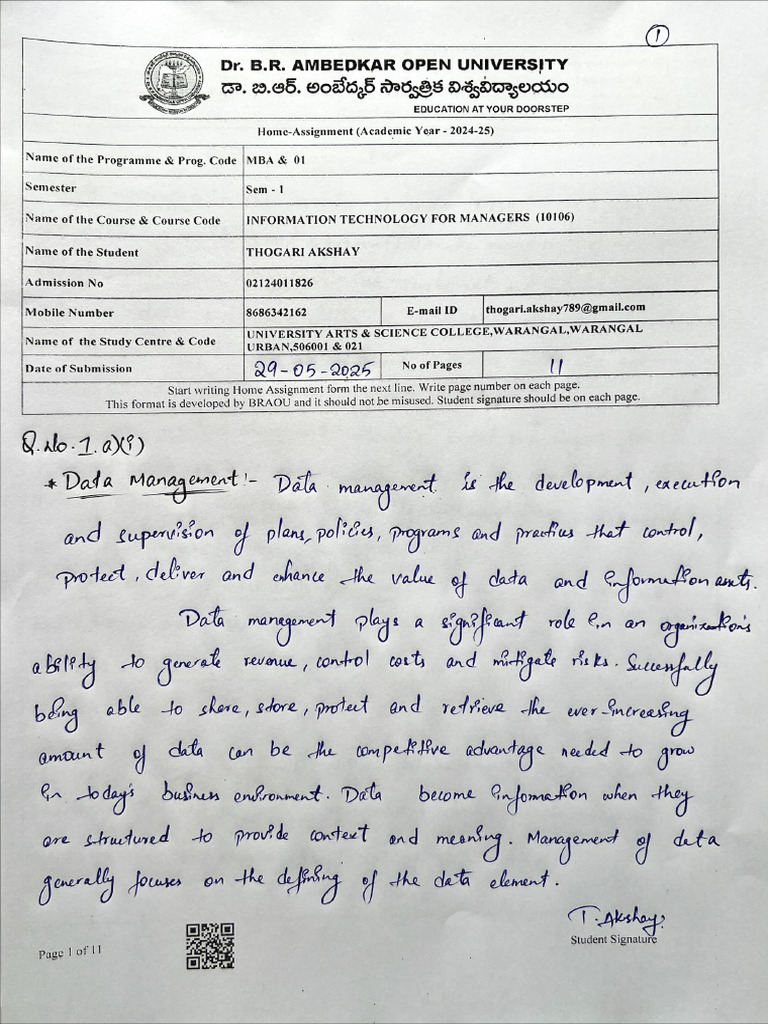 1
Dr. B.R. AMBEDKAR OPEN UNIVERSITY
డా. బి.ఆర్. అంబేద్కర్ సార్వత్రిక విశ్వవిద్యాలయం
EDUCATION AT YOUR DOORSTEP
Home-Assignment (Academic Year - 2024-25)
Name of the Programme & Prog. Code MBA & 01
Semester Sem - 1
Name of the Course & Course Code INFORMATION TECHNOLOGY FOR MANAGERS (10106)
Name of the Student THOGARI AKSHAY
Admission No 02124011826
Mobile Number 8686342162 E-mail ID thogari.akshay789@gmail.com
Name of the Study Centre & Code UNIVERSITY ARTS & SCIENCE COLLEGE,WARANGAL,WARANGAL
URBAN,506001 & 021
Date of Submission 29-05-2025 No of Pages 11
Start writing Home Assignment form the next line. Write page number on each page.
This format is developed by BRAOU and it should not be misused. Student signature should be on each page.
Q.No.1.a)(i)
* Data Management:- Data management is the development, execution
and supervision of plans, policies, programs and practius that control,
protect, deliver and enhance the value of data and information assets.
Data management plays a significant role in an organization's
ability to generate revenue, control costs and mitigate risks. Successfully
being able to share, store, protect and retrieve the ever-increasing
amount of data can be the competitive advantage needed to grow
in today's business environment. Data become information when they
are structured to provide context and meaning. Management of data
generally focuses on the defining of the data element.
T. Akshay
Student Signature
Page 1 of 11